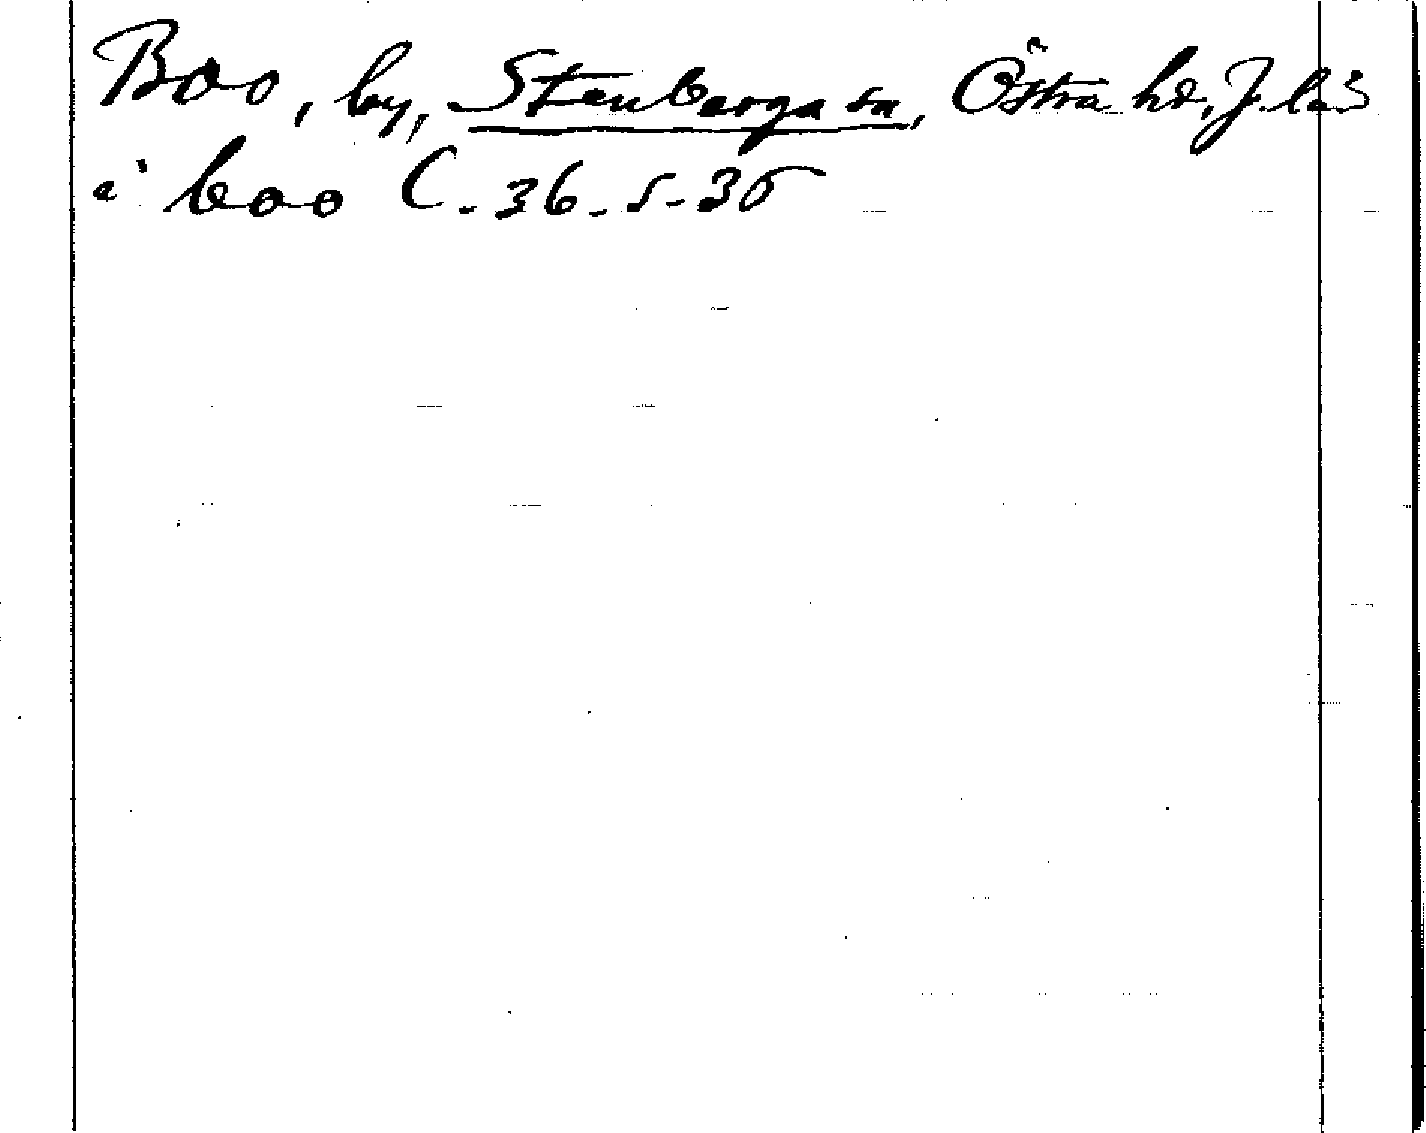 Boo, by, Stenberga sn, Östra hd, J. län
i boo C. 36. 5-35